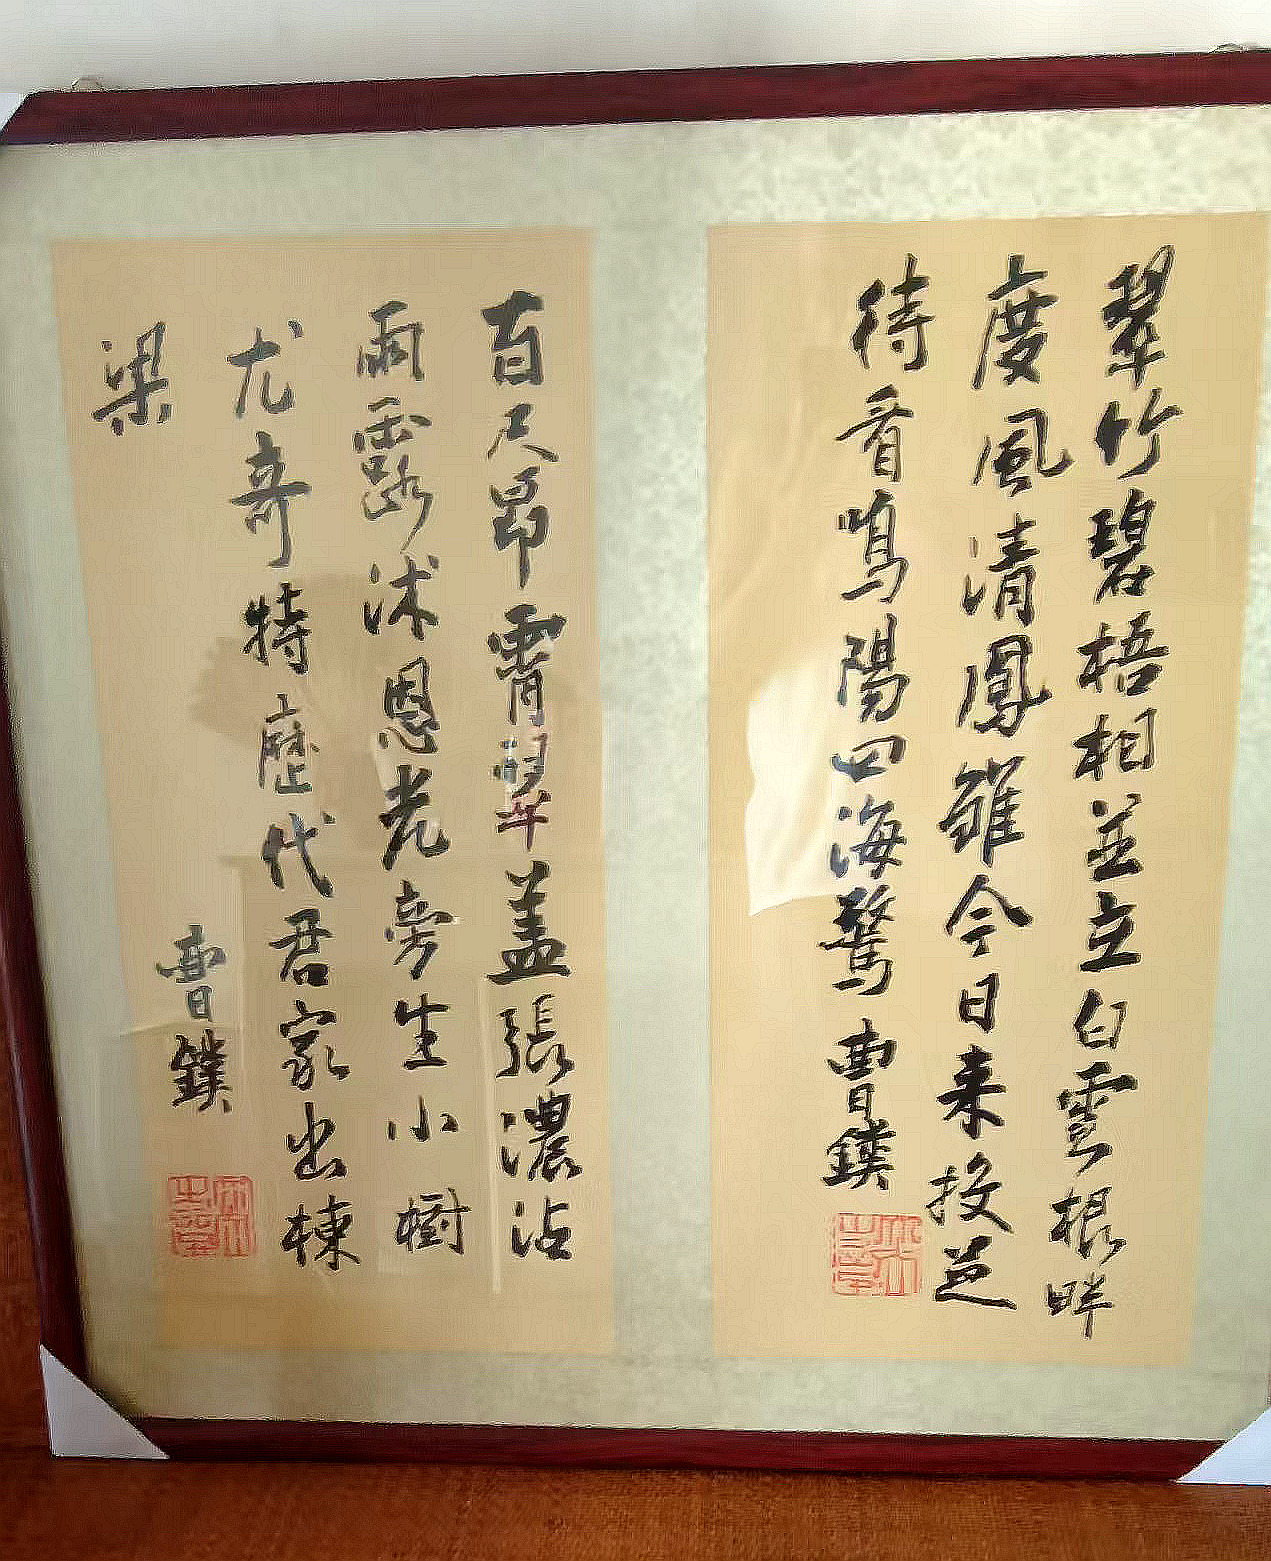 翠竹碧梧相並立白雲根畔
度風清鳳雛今日来投芝
待看鳴陽四海驚 曹鏷
百尺昂霄翠蓋張濃沾
雨露沭恩光旁生小樹
尤奇特歷代君家出棟
梁
曹鏷